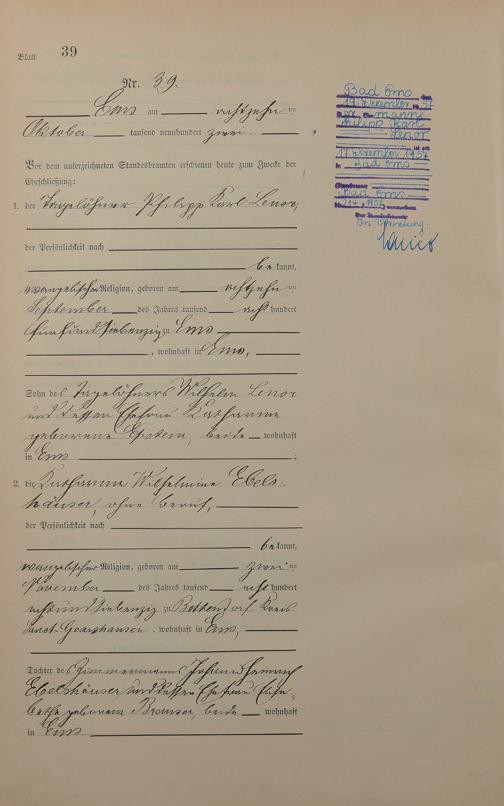 Blatt 39
Nr. 39.
Ems am achtzehnten
Oktober tausend neunhundert zwei
Vor dem unterzeichneten Standesbeamten erschienen heute zum Zwecke der
Eheschließung:
1. der Tagelöhner Philipp Karl Lenor,
der Persönlichkeit nach
bekannt,
evangelischer Religion, geboren am achtzehnten
September des Jahres tausend achthundert
fünfundsiebenzig zu Ems
, wohnhaft in Ems,
Sohn des Tagelöhners Wilhelm Lenor
und dessen Ehefrau Katharine
geborene Epstein, beide wohnhaft
in Ems
2. die Katharine Wilhelmine Ebels-
häuser, ohne Beruf,
der Persönlichkeit nach
bekannt,
evangelischer Religion, geboren am zweiten
November des Jahres tausend achthundert
achtundsiebenzig zu Bettendorf Kreis
Sanct Goarshausen, wohnhaft in Ems,
Tochter des Zimmermanns Johann Heinrich
Ebelshäuser und dessen Ehefrau Elisa-
betha geborene beide wohnhaft
in Ems
Bad Ems, den
19. Dezember 1957
Der Ehemann
Philipp Karl
Lenor
ist am
17. Dezember 1957
in Bad Ems
Standesamt
Bad Ems
Nr. 214/1957
Der Standesbeamte
In Vertretung: